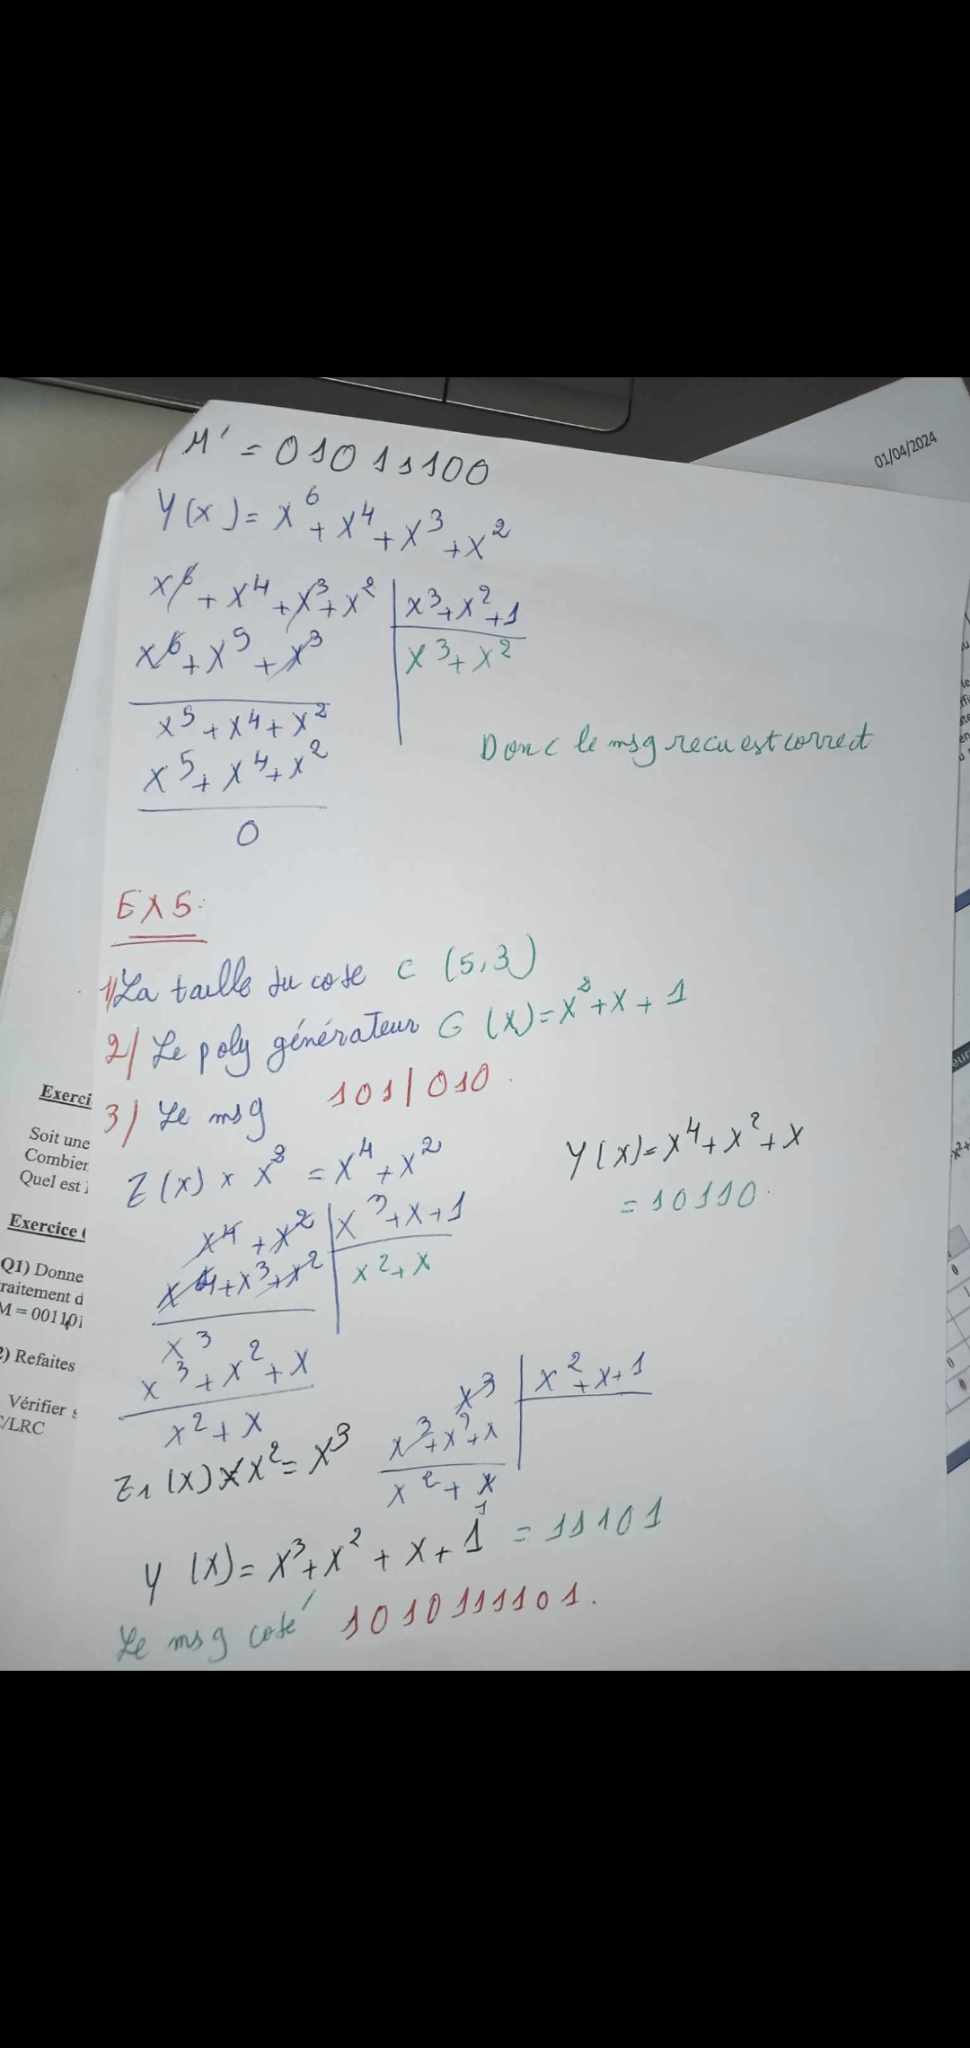 01/04/2024
M' = 01011100
Y(x) = x⁶ + x⁴ + x³ + x²
x⁶ + x⁴ + x³ + x² | x³ + x² + 1
x⁶ + x⁵ + x³ | x³ + x²
x⁵ + x⁴ + x²
x⁵ + x⁴ + x²
0
Donc le msg recu est correct
EX5:
1) La taille du code C (5,3)
2) Le poly générateur G(x) = x² + x + 1
3) Le msg 101/010.
Z(x) × x³ = x⁴ + x²
Y(x) = x⁴ + x² + x
= 10110.
x⁴ + x² | x³ + x + 1
x⁴ + x³ + x² | x² + x
x³
x³ + x² + x
x² + x
x³ | x² + x + 1
x³ + x² + x
x² + x
Z1(x) × x² = x³
Y(x) = x³ + x² + x + 1 = 11101
Le msg codé 1010111101.
Exerci
Soit une
Combien
Quel est
Exercice
Q1) Donne
raitement d
M = 001101
2) Refaites
Vérifier s
C/LRC